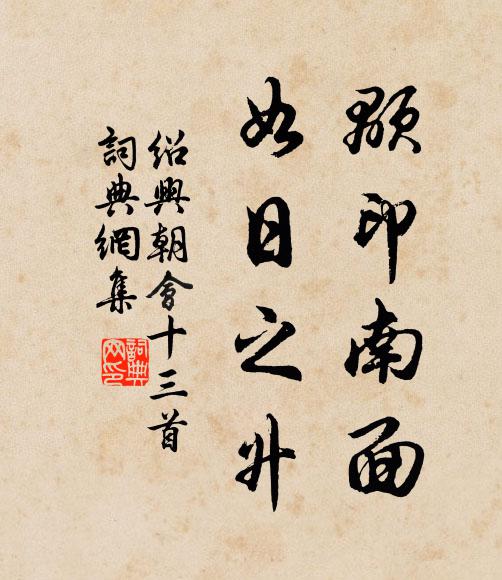 顒印南面
如日之升
紹興朝會十三首
詞典網集
詞典
网印